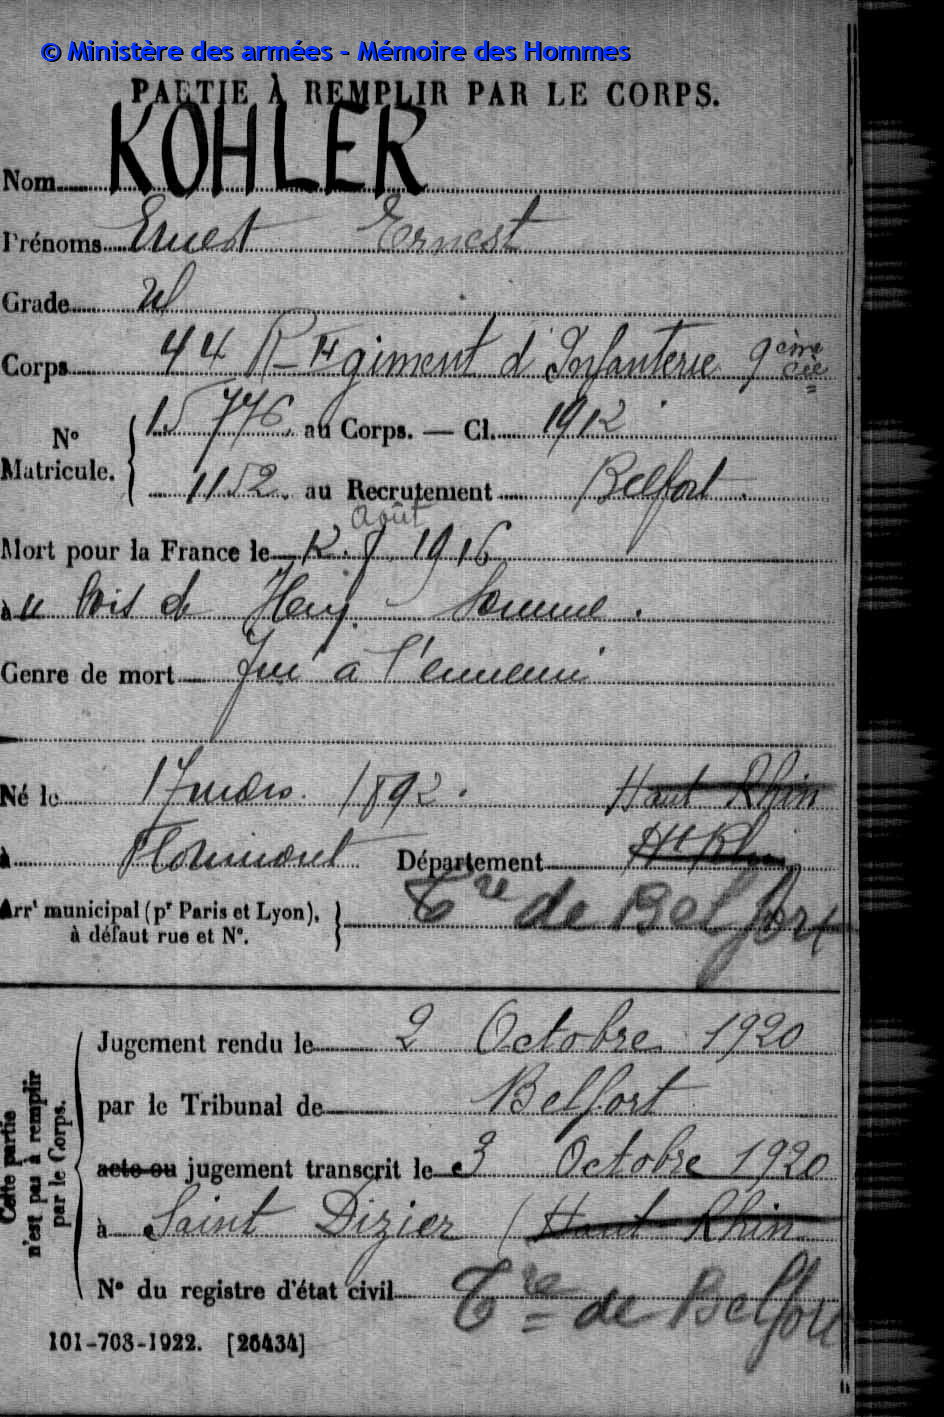 © Ministère des armées - Mémoire des Hommes
PARTIE À REMPLIR PAR LE CORPS.
Nom KOHLER
Prénoms Ernest Ernest
Grade
Corps 44 Régiment d'Infanterie 9ème Cie
15776 au Corps. — Cl. 1912
N° Matricule.
1152. au Recrutement Belfort.
Août
Mort pour la France le 12. 8 1916
à u bois de Hem Somme.
Genre de mort Tué à l'ennemi
Né le 17 mars 1892. Haut Rhin
à Florimont Département Ht Rhin
Arrt municipal (pr Paris et Lyon), à défaut rue et N°. Tre de Belfort
Cette partie n'est pas à remplir par le Corps.
Jugement rendu le 2 Octobre 1920
par le Tribunal de Belfort
acte ou jugement transcrit le 3 Octobre 1920
à Saint Dizier (Haut Rhin
N° du registre d'état civil Tre de Belfort
101-708-1922. [26434]